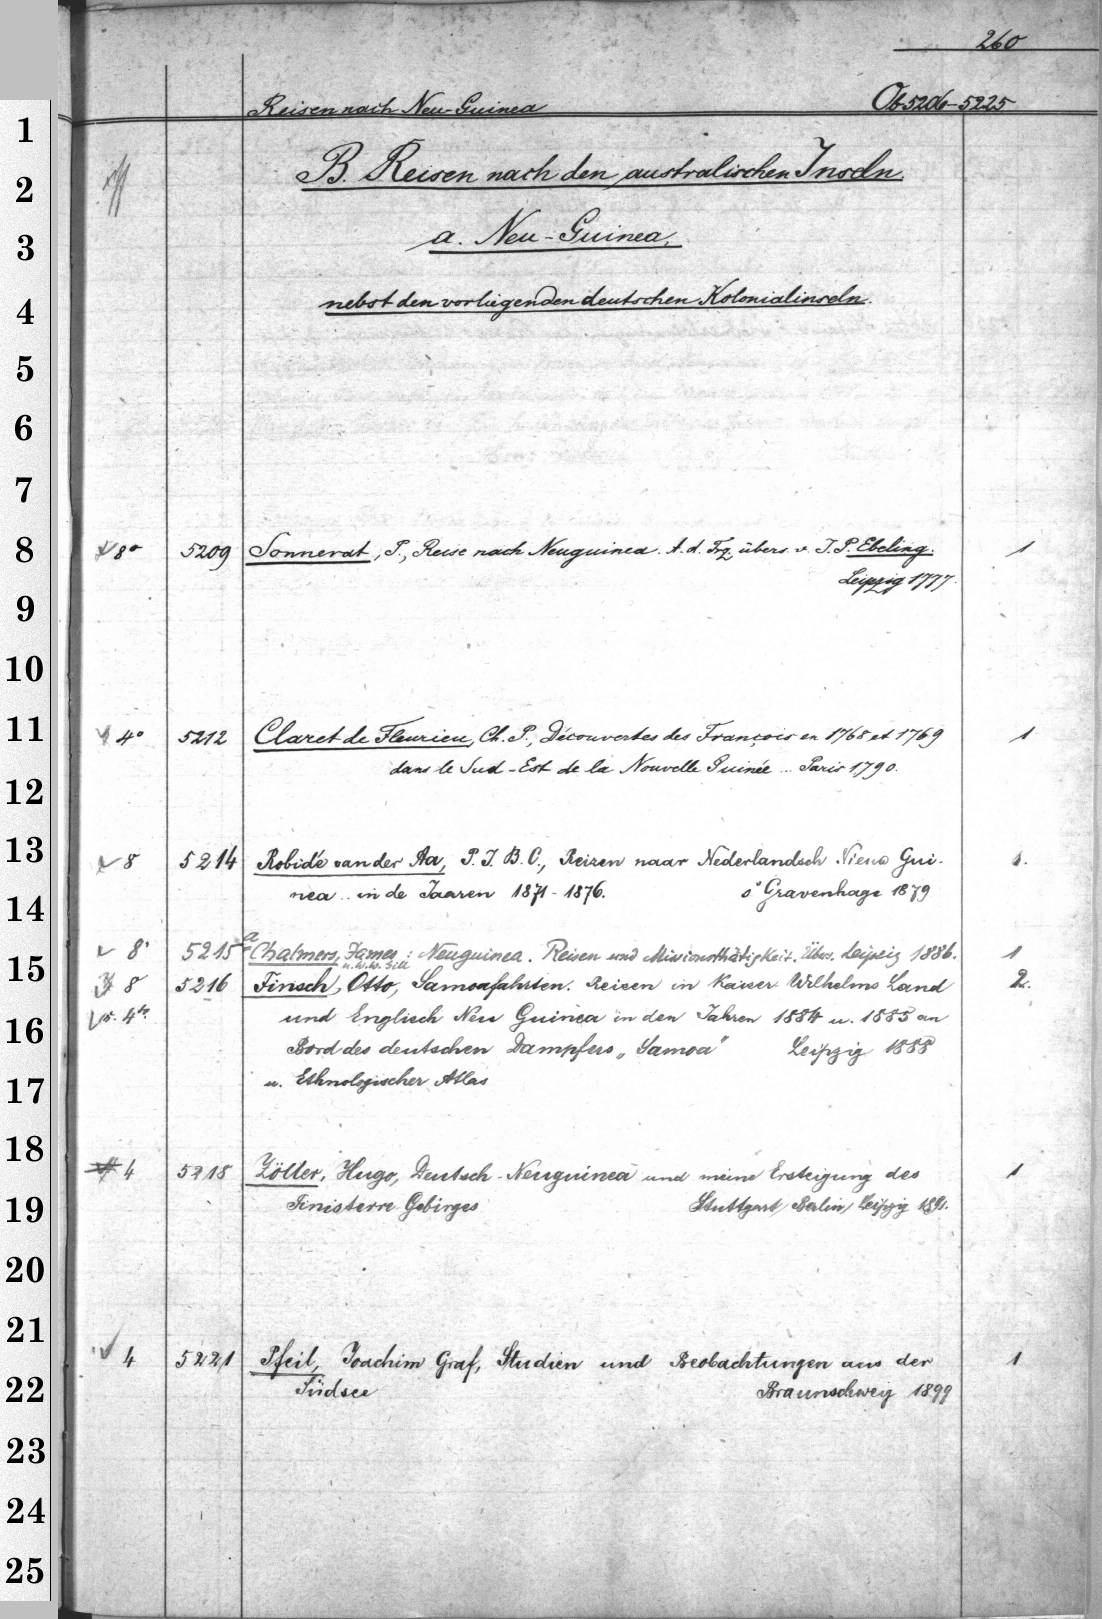 260
Reisen nach Neu-Guinea Ob 5206-5225
B. Reisen nach den australischen Inseln.
a. Neu-Guinea,
nebst den vorliegenden deutschen Kolonialinseln.
8° 5209 Sonnerat, P., Reise nach Neuguinea. A. d. Frz. übers. v. J. P. Ebeling. 1
Leipzig 1777.
4° 5212 Claret de Fleurieu, Ch. P., Découvertes des François en 1768 et 1769 1
dans le Sud-Est de la Nouvelle Guinée ... Paris 1790.
8 5214 Robidé van der Aa, P. J. B. C., Reizen naar Nederlandsch Nieuw Gui- 1.
nea .. in de Jaaren 1871-1876. s'Gravenhage 1879
8° 5215a Chalmers, James u. W. W. Gill: Neuguinea. Reisen und Missionsthätigkeit. Übers. Leipzig 1886. 1
8 5216 Finsch, Otto, Samoafahrten. Reisen in Kaiser Wilhelms Land 2.
4° und Englisch Neu Guinea in den Jahren 1884 u. 1885 an
Bord des deutschen Dampfers „Samoa" Leipzig 1888
u. Ethnologischer Atlas
4 5218 Zöller, Hugo, Deutsch-Neuguinea und meine Ersteigung des 1
Finisterre Gebirges Stuttgart, Berlin, Leipzig 1891.
4 5221 Pfeil, Joachim Graf, Studien und Beobachtungen aus der 1
Südsee Braunschweig 1899
1
2
3
4
5
6
7
8
9
10
11
12
13
14
15
16
17
18
19
20
21
22
23
24
25